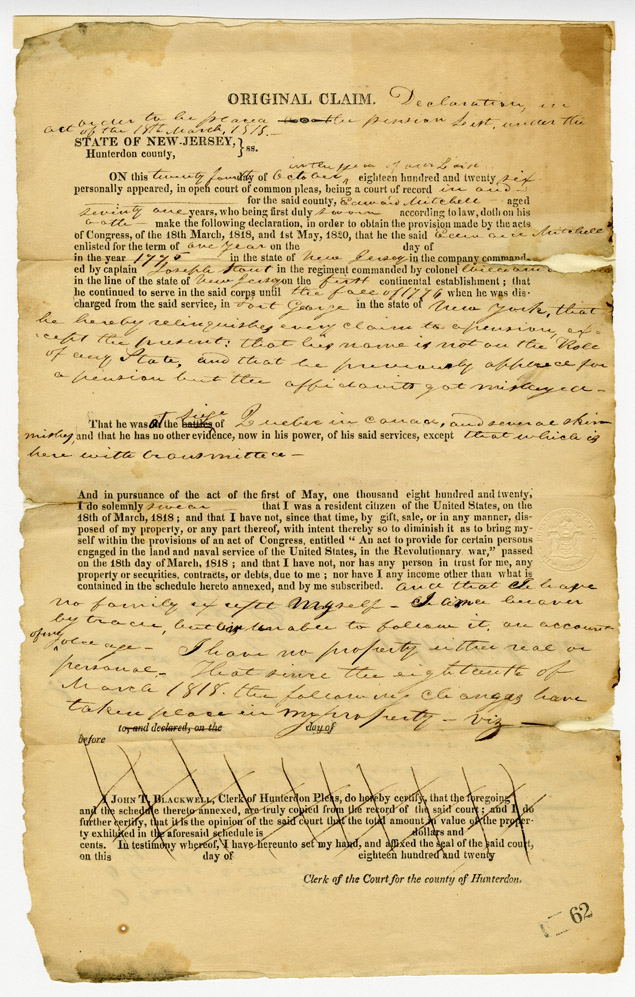 ORIGINAL CLAIM. Declaration, in
order to be placed on the pension List, under the
act of the 18th March, 1818.—
STATE OF NEW-JERSEY, } ss.
Hunterdon county,
in the year of our Lord
ON this twenty fourth day of October eighteen hundred and twenty six
personally appeared, in open court of common pleas, being a court of record in and
for the said county, Edward Mitchell aged
seventy one years, who being first duly sworn according to law, doth on his
oath — make the following declaration, in order to obtain the provision made by the acts
of Congress, of the 18th March, 1818, and 1st May, 1820, that he the said Edward Mitchell
enlisted for the term of one year on the day of
in the year 1775 in the state of New Jersey in the company command-
ed by captain Joseph Stout in the regiment commanded by colonel William
in the line of the state of New Jersey on the first continental establishment; that
he continued to serve in the said corps until the fall of 1776 when he was dis-
charged from the said service, in Fort George in the state of New York, that
he hereby relinquishes every claim to a pension, ex-
cept the present: that his name is not on the Role
of any State, and that he previously applied for
a pension but the affidavits got mislayed —
That he was at the Siege battles of Quebec in Canada, and several skir
mishes, and that he has no other evidence, now in his power, of his said services, except that which is
here with transmitted —
And in pursuance of the act of the first of May, one thousand eight hundred and twenty,
I do solemnly swear — that I was a resident citizen of the United States, on the
18th of March, 1818; and that I have not, since that time, by gift, sale, or in any manner, dis-
posed of my property, or any part thereof, with intent thereby so to diminish it as to bring my-
self within the provisions of an act of Congress, entitled "An act to provide for certain persons
engaged in the land and naval service of the United States, in the Revolutionary war," passed
on the 18th day of March, 1818; and that I have not, nor has any person in trust for me, any
property or securities, contracts, or debts, due to me; nor have I any income other than what is
contained in the schedule hereto annexed, and by me subscribed. and that I have
no family except myself — I am a weaver
by trade, but unable to follow it, on account
of my old age — I have no property either real or
personal. — That since the eighteenth of
March 1818. the following changes have
taken place in my property — viz —
to, and declared, on the day of
before
I JOHN T. BLACKWELL, Clerk of Hunterdon Pleas, do hereby certify, that the foregoing
and the schedule thereto annexed, are truly copied from the record of the said court; and I do
further certify, that it is the opinion of the said court that the total amount in value of the proper-
ty exhibited in the aforesaid schedule is dollars and
cents. In testimony whereof, I have hereunto set my hand, and affixed the seal of the said court,
on this day of eighteen hundred and twenty
Clerk of the Court for the county of Hunterdon.
62